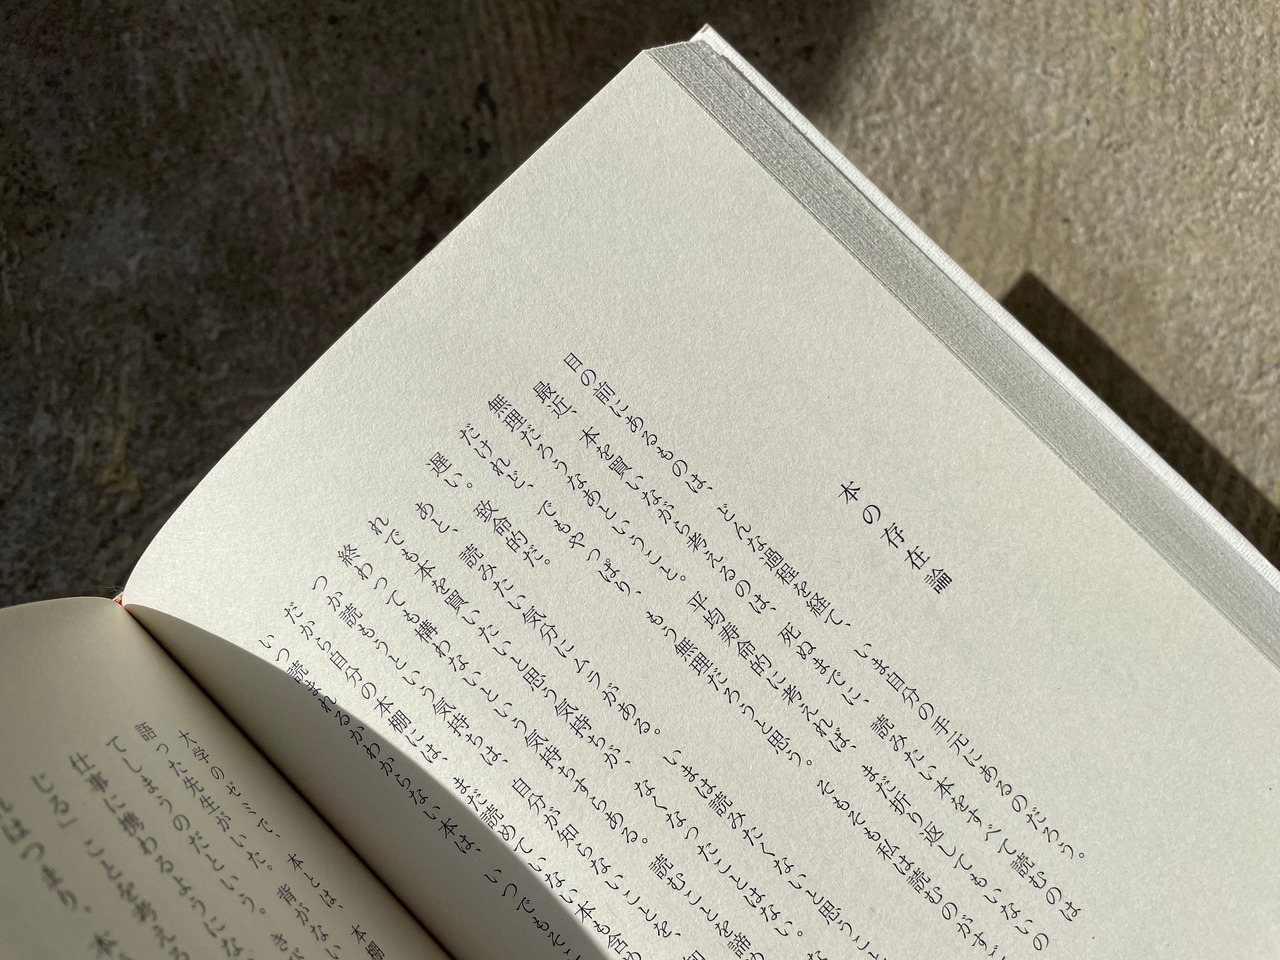 本の存在論
目の前にあるものは、どんな過程を経て、いま自分の手元にあるのだろう。
最近、本を買いながら考えるのは、死ぬまでに、読みたい本をすべて読むのは
無理だろうなあということ。平均寿命的に考えれば、まだ折り返してもいないの
だけれど、でもやっぱり、もう無理だろうと思う。そもそも私は読むのがすご
遅い。致命的だ。
あと、読みたい気分にムラがある。いまは読みたくないと思うこ
れでも本を買いたいと思う気持ちが、なくなったことはない。
終わっても構わないという気持ちすらある。読むことを諦め
つか読もうという気持ちは、自分が知らないことを、知
だから自分の本棚には、まだ読めていない本も含め
いつ読まれるかわからない本は、いつでもそこ
大学のゼミで、本とは、本棚
語った先生がいた。背がない
てしまうのだという。
仕事に携わるようにな
じる」ことを考える
れはつまり、本